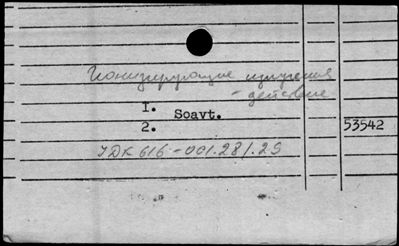 Ионизирующие излучения
- действие
1.
Soavt.
2.
53542
УДК 616-001.28/.29